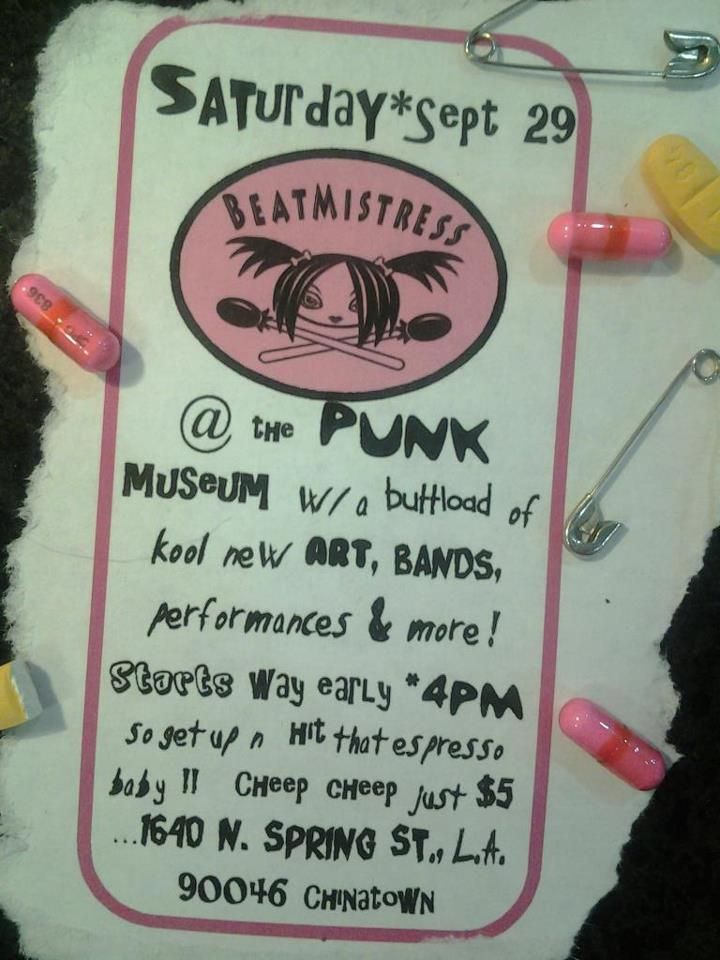 SATurdaY*Sept 29
BEATMISTRESS
@ tHe PUNK
MUSeUM W/a buttload of
kool neW ART, BANDS,
performances & more!
Starts Way eaRLy *4PM
so get up n Hit that espresso
baby !! CHeep CHeep just $5
...1640 N. SPRING ST., L.A.
90046 CHINatOWN
836